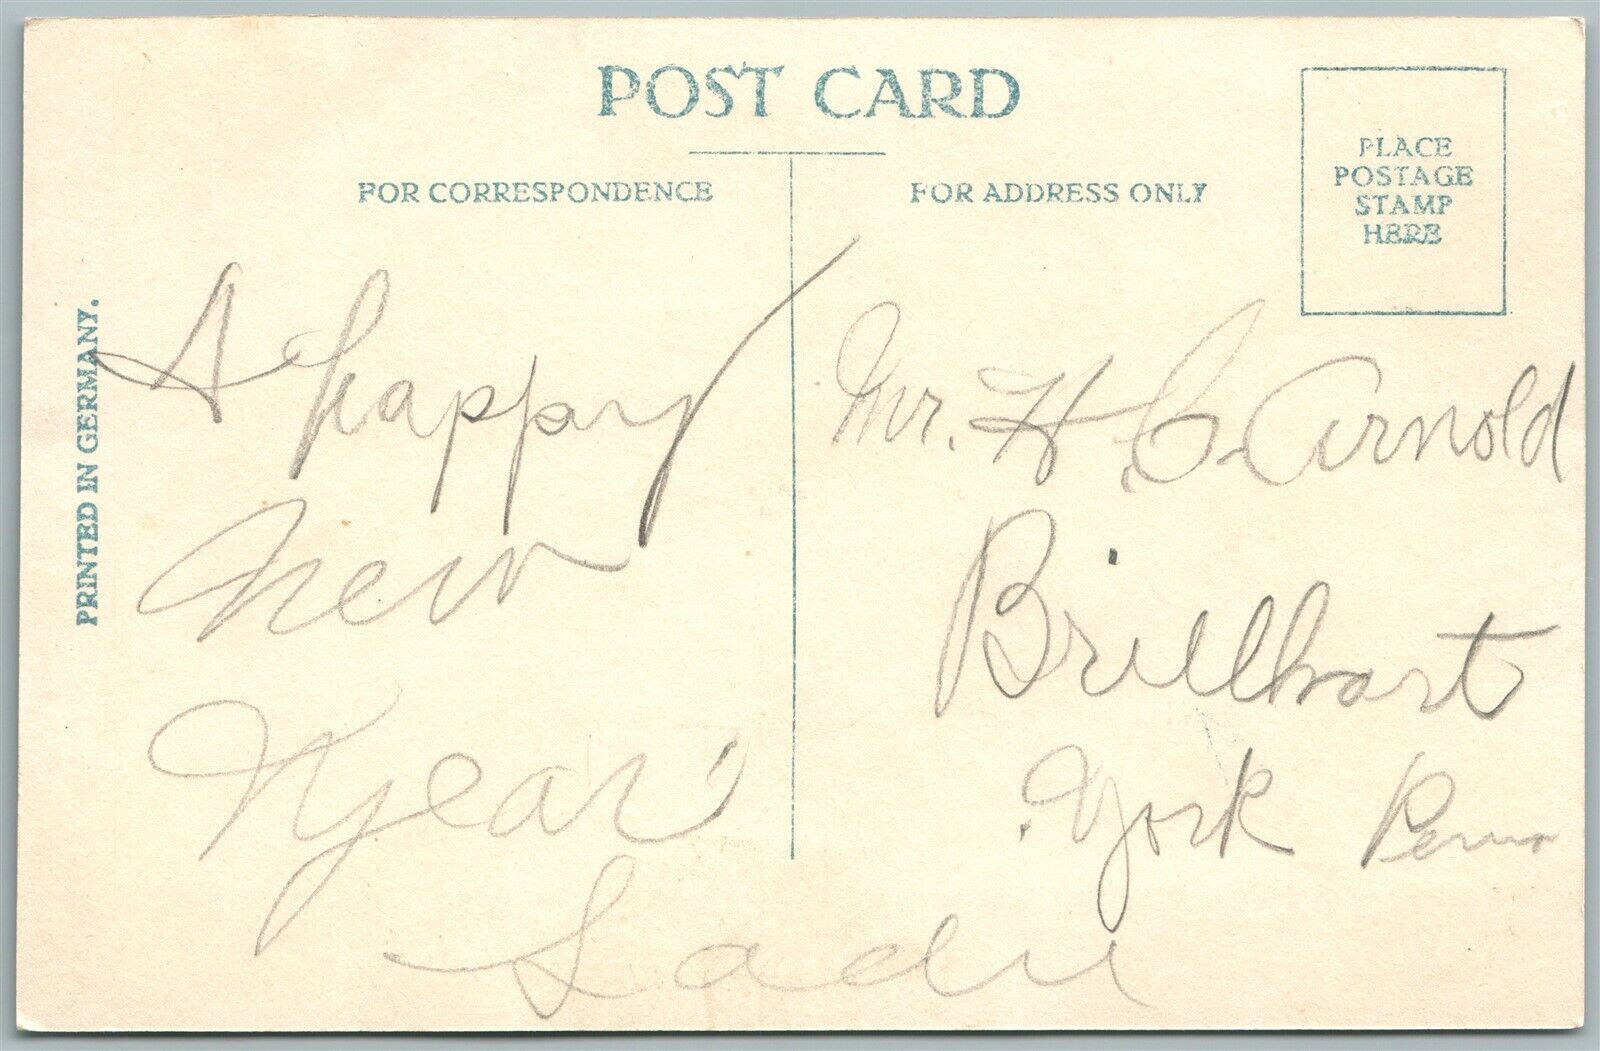 POST CARD
FOR CORRESPONDENCE
FOR ADDRESS ONLY
PLACE
POSTAGE
STAMP
HERE
PRINTED IN GERMANY.
A happy
New
Year
Sadie
Mr. H. C. Arnold
Brillhart
York Penna